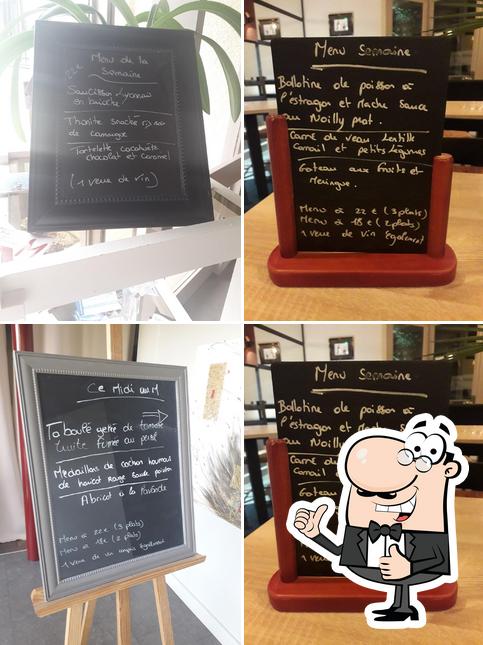 22€ Menu de la
Semaine
Saucisson Lyonnais
en brioche
Thonite snackée riz noir
de camargue
Tartelette cacahuète
chocolat et caramel
(1 verre de vin)
Menu Semaine
Ballotine de poisson à
l'estragon et Mache Sauce
au Noilly prat.
Carré de veau Lentille
Corail et petits légumes
Gateau aux fruits et
Meringue.
Menu à 22 € (3 plats)
Menu à 18 € (2 plats)
1 verre de vin également
Ce Midi au M
Taboulé gelée de tomate
truite fumée au
Médaillon de cochon houmous
de haricot Rouge Sauce poivron
Abricot à la Pavlova
Menu à 22€ (3 plats)
Menu à 18€ (2 plats)
1 verre de vin compris également
Menu Semaine
Ballotine de poisson à
l'estragon et M
au Noilly p
Carré d
Corail
Gateau
Me
M
1 ve